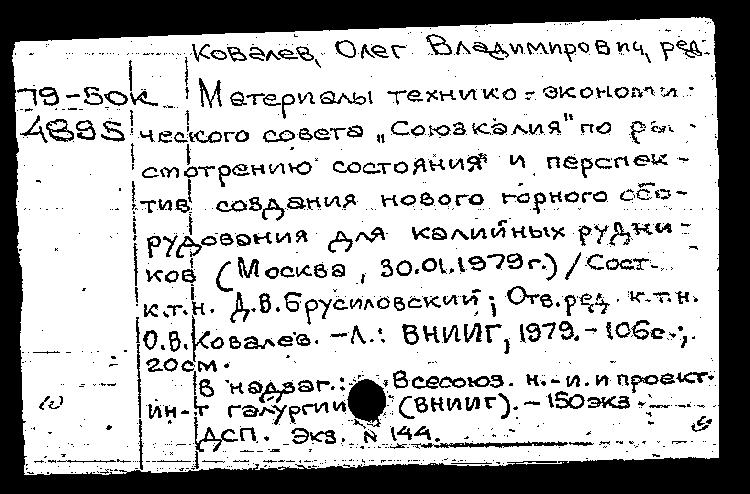 Ковалев, Олег Владимирович, ред.
79-50к Материалы технико-экономи-
4895 ческого совета „Союзкалия" по рас-
смотрению состояния и перспек-
тив создания нового горного обо-
рудования для калийных рудни-
ков (Москва, 30.01.1979г.) / Сост.
к.т.н. Д.В.Брусиловский; Отв.ред. к.т.н.
О.В.Ковалев. - Л.: ВНИИГ, 1979. - 106с.;
20см.
В надзаг.: Всесоюз. н.-и. и проект.
ин-т галургии (ВНИИГ). - 150экз.
ДСП. Экз. N 144.